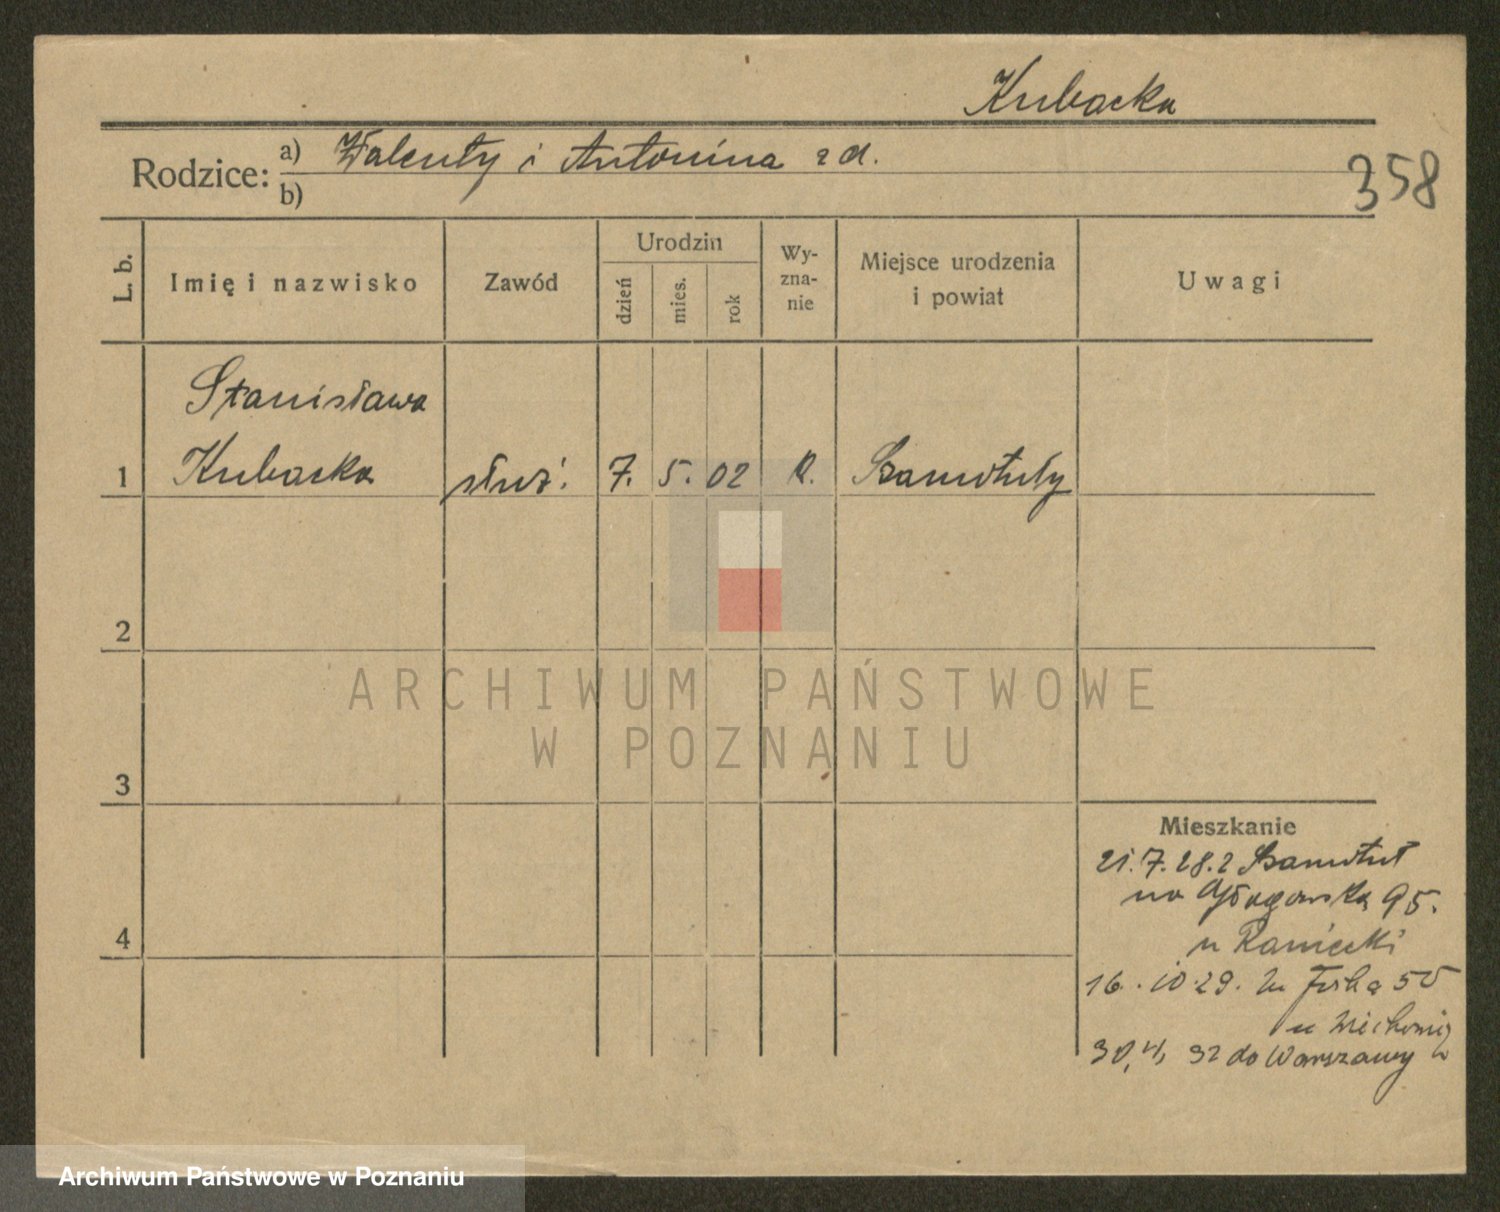 Kubacka
Rodzice: a) Walenty i Antonina z d.
b)
358
L. b.
Imię i nazwisko
Zawód
Urodzin
dzień
mies.
rok
Wy-
zna-
nie
Miejsce urodzenia
i powiat
Uwagi
Stanisława
1 Kubacka służ. 7. 5. 02 R. Szamotuły
2
3
4
Mieszkanie
21.7.28. z Szamotuł
na Głogowska 95.
u
16.10.29. 50
u
30,4, 32 do Warszawy
ARCHIWUM PAŃSTWOWE
W POZNANIU
Archiwum Państwowe w Poznaniu